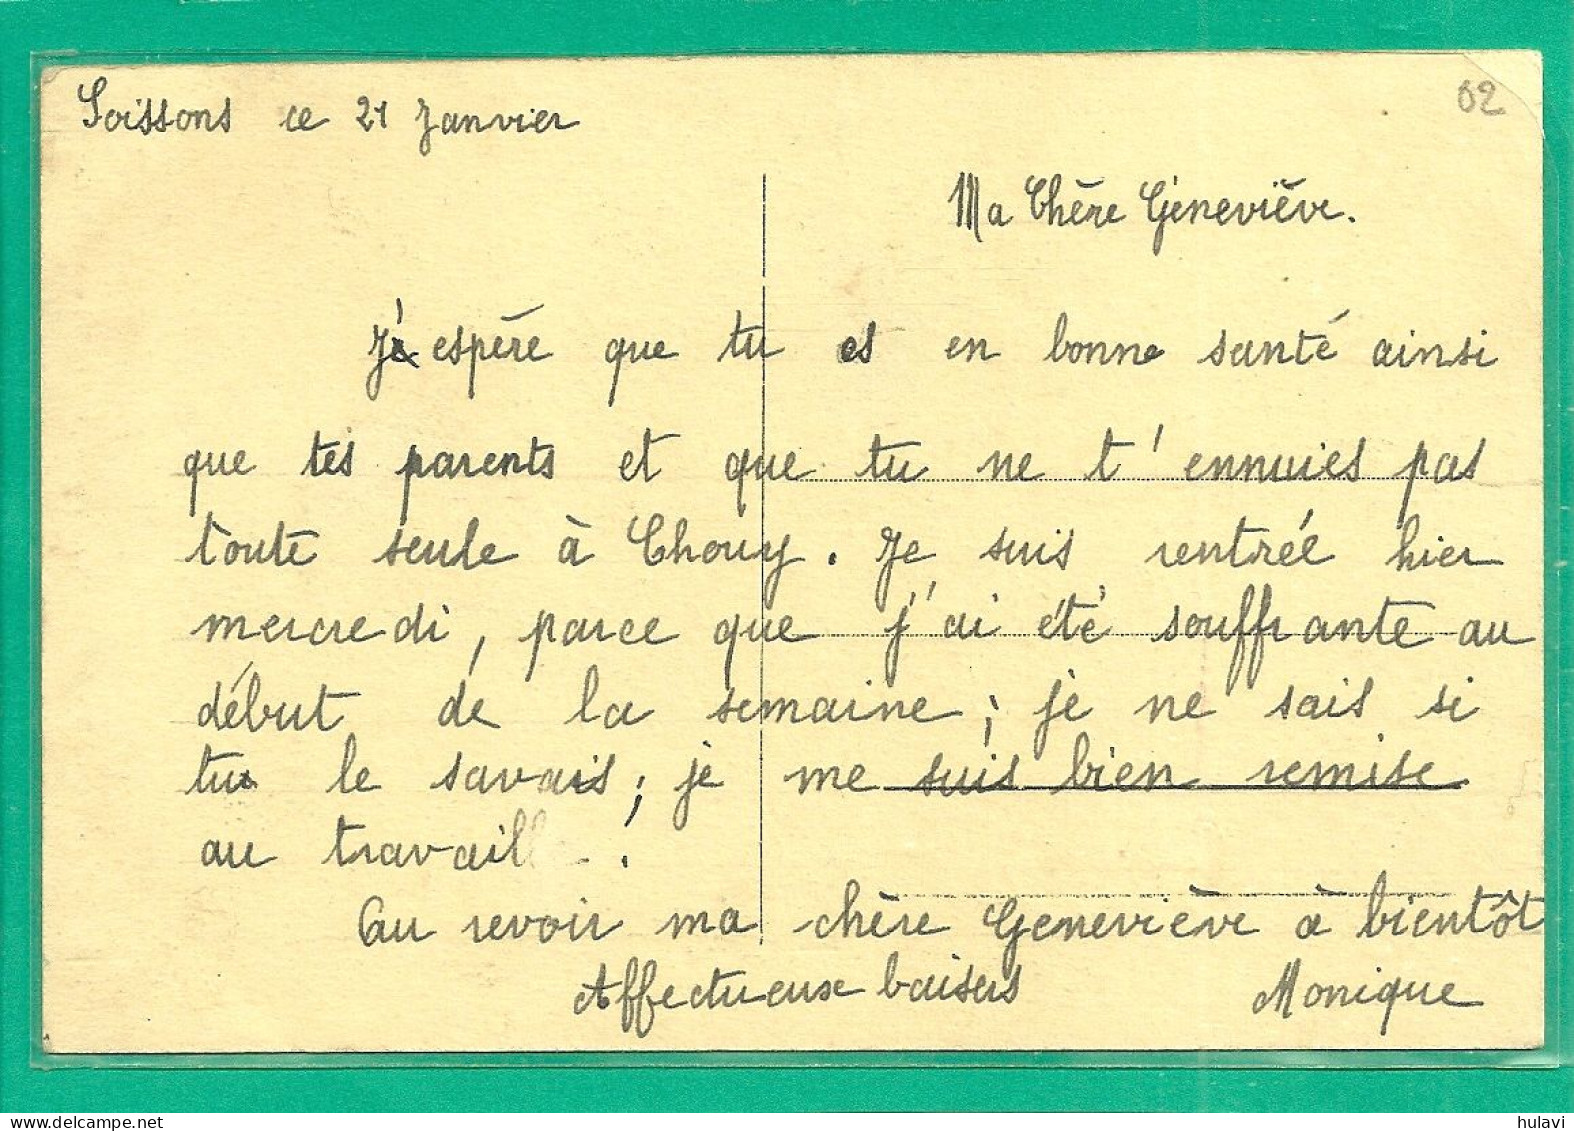 Soissons ce 21 Janvier
02
Ma Chère Géneviève.
J'espère que tu es en bonne santé ainsi
que tes parents et que tu ne t'ennuies pas
toute seule à Chouy. Je suis rentrée hier
mercredi, parce que j'ai été souffrante au
début de la semaine; je ne sais si
tu le savais; je me suis bien remise
au travail.
Au revoir ma chère Geneviève à bientôt
Affectueux baisers Monique
hulavi